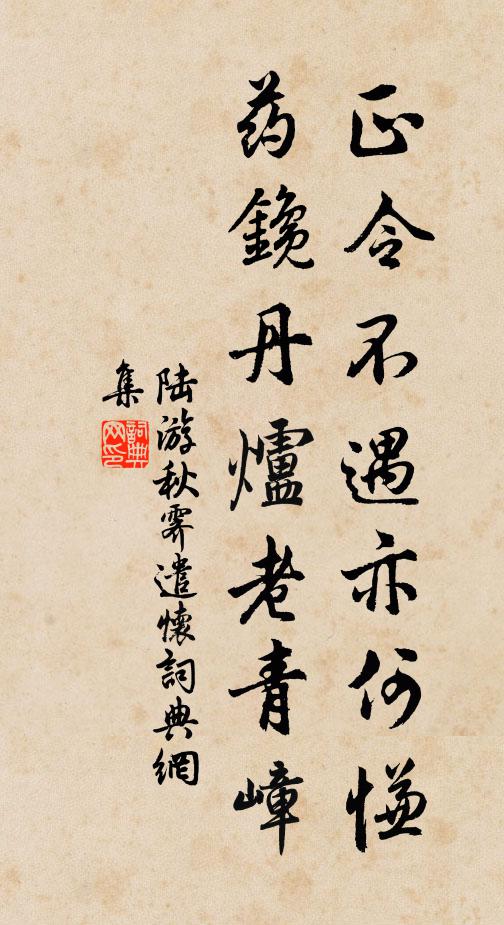 正令不遇亦何慊
药鑱丹爐老青嶂
陆游秋霽遣懷詞典網
集
詞典
网印